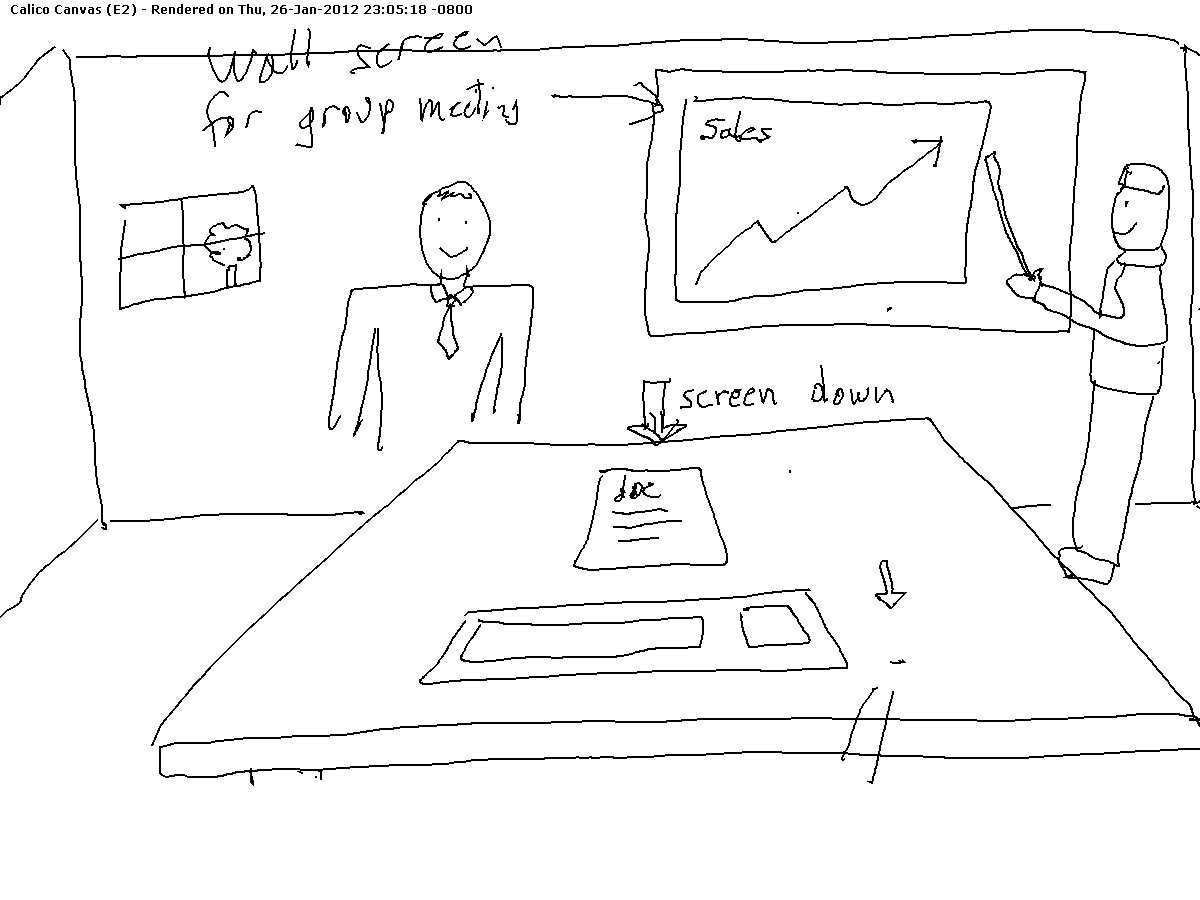 Calico Canvas (E2) - Rendered on Thu, 26-Jan-2012 23:05:18 -0800
Wall screen
for group meeting
Sales
screen down
doc